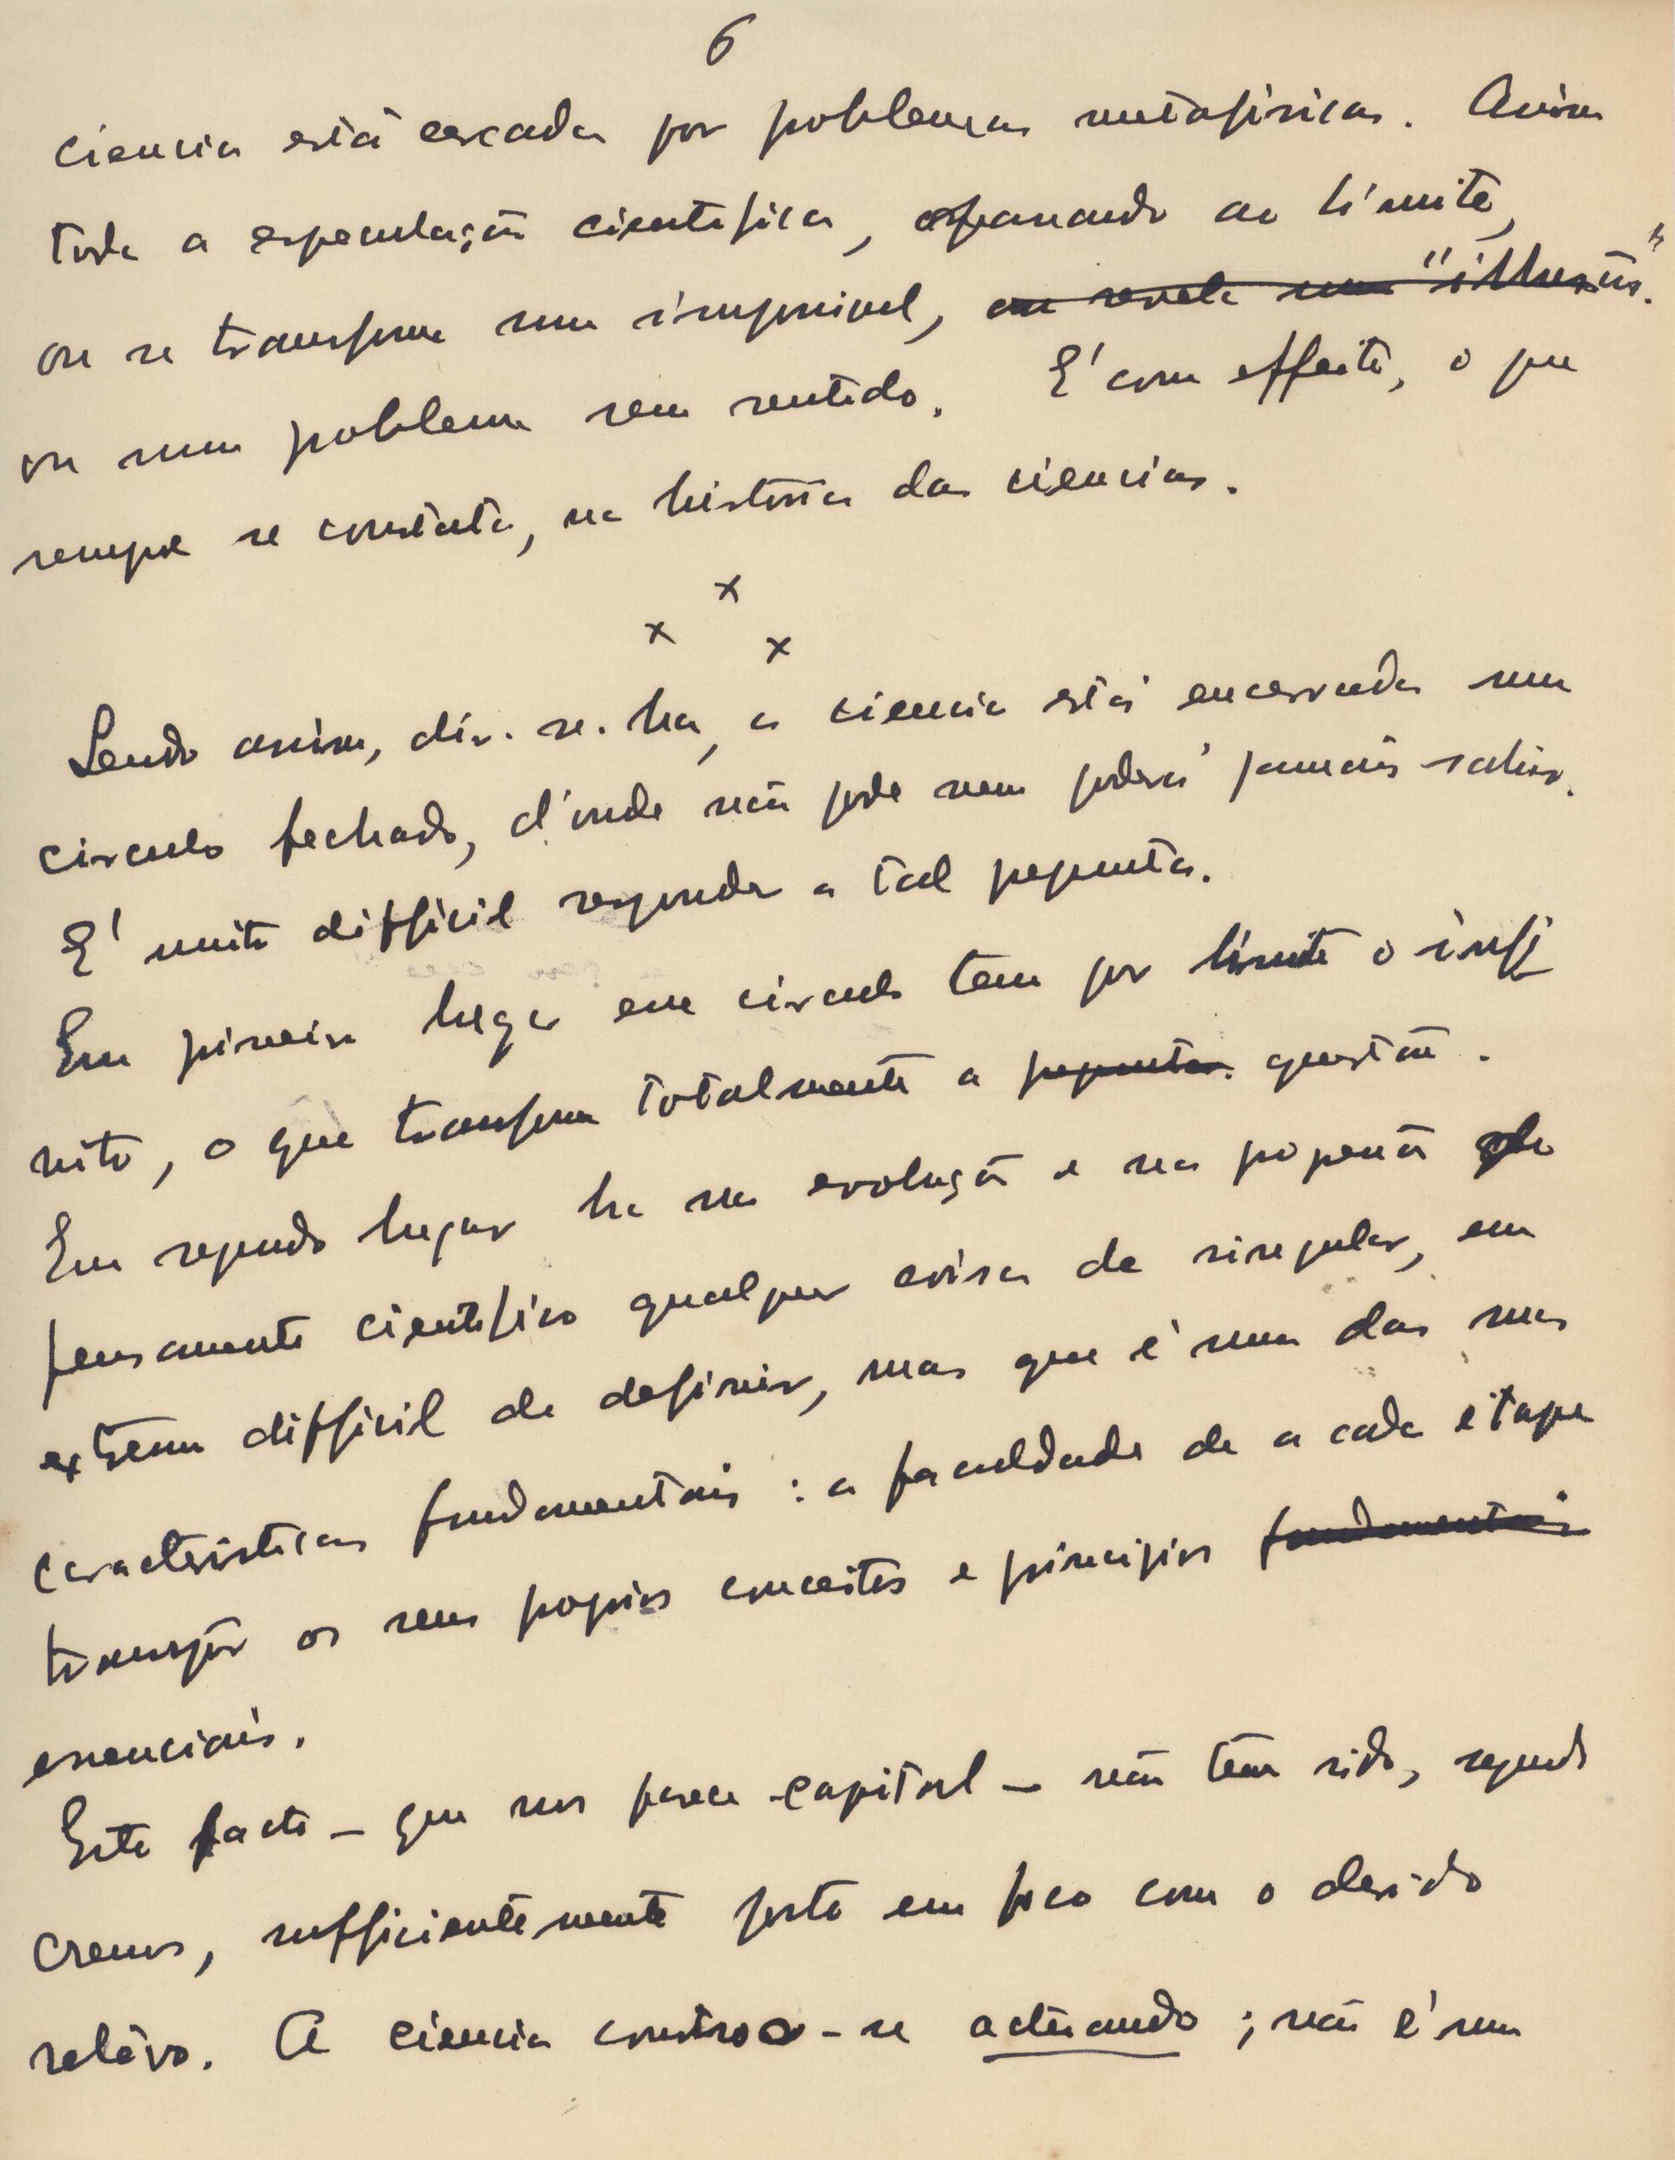 6
ciencia está cercada por problemas metafisicos. Assim
toda a especulação cientifica, passando ao límite,
ou se transforma num impossivel, ou revela uma "illusão".
ou num problema sem sentido. E' com effeito, o que
sempre se constata, na historia das ciencias.
x
x x
Sendo assim, dir-se-ha, a ciencia está encerrada num
circulo fechado, d'onde não pode nem poderá jamais sahir.
E' muito difficil responder a tal pergunta.
Em primeiro lugar esse circulo tem por límite o infi
nito, o que transforma totalmente a pergunta. questão.
Em segundo lugar ha na evolução e na progressão do
pensamento cientifico qualquer coisa de singular, em
extremo difficil de definir, mas que é uma das suas
caracteristicas fundamentais : a faculdade de a cada étape
transpôr os seus proprios conceitos e principios fundamentais
essenciais.
Este facto — que nos parece capital — não tem sido, segundo
cremos, sufficientemente posto em foco com o devido
relêvo. A ciencia constroe-se actuando ; não é um